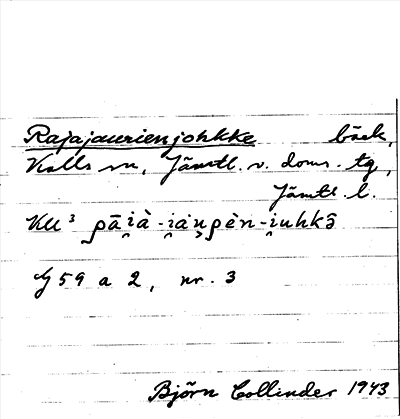 Rajajaurienjohkke bäck,
Kalls sn, Jämtl. v. doms. tg,
Jämtl. l.
KU³ ρāi̯à-i̯áu̯ρèn-i̯uhkə̑
G 59 a 2, nr. 3
Björn Collinder 1943